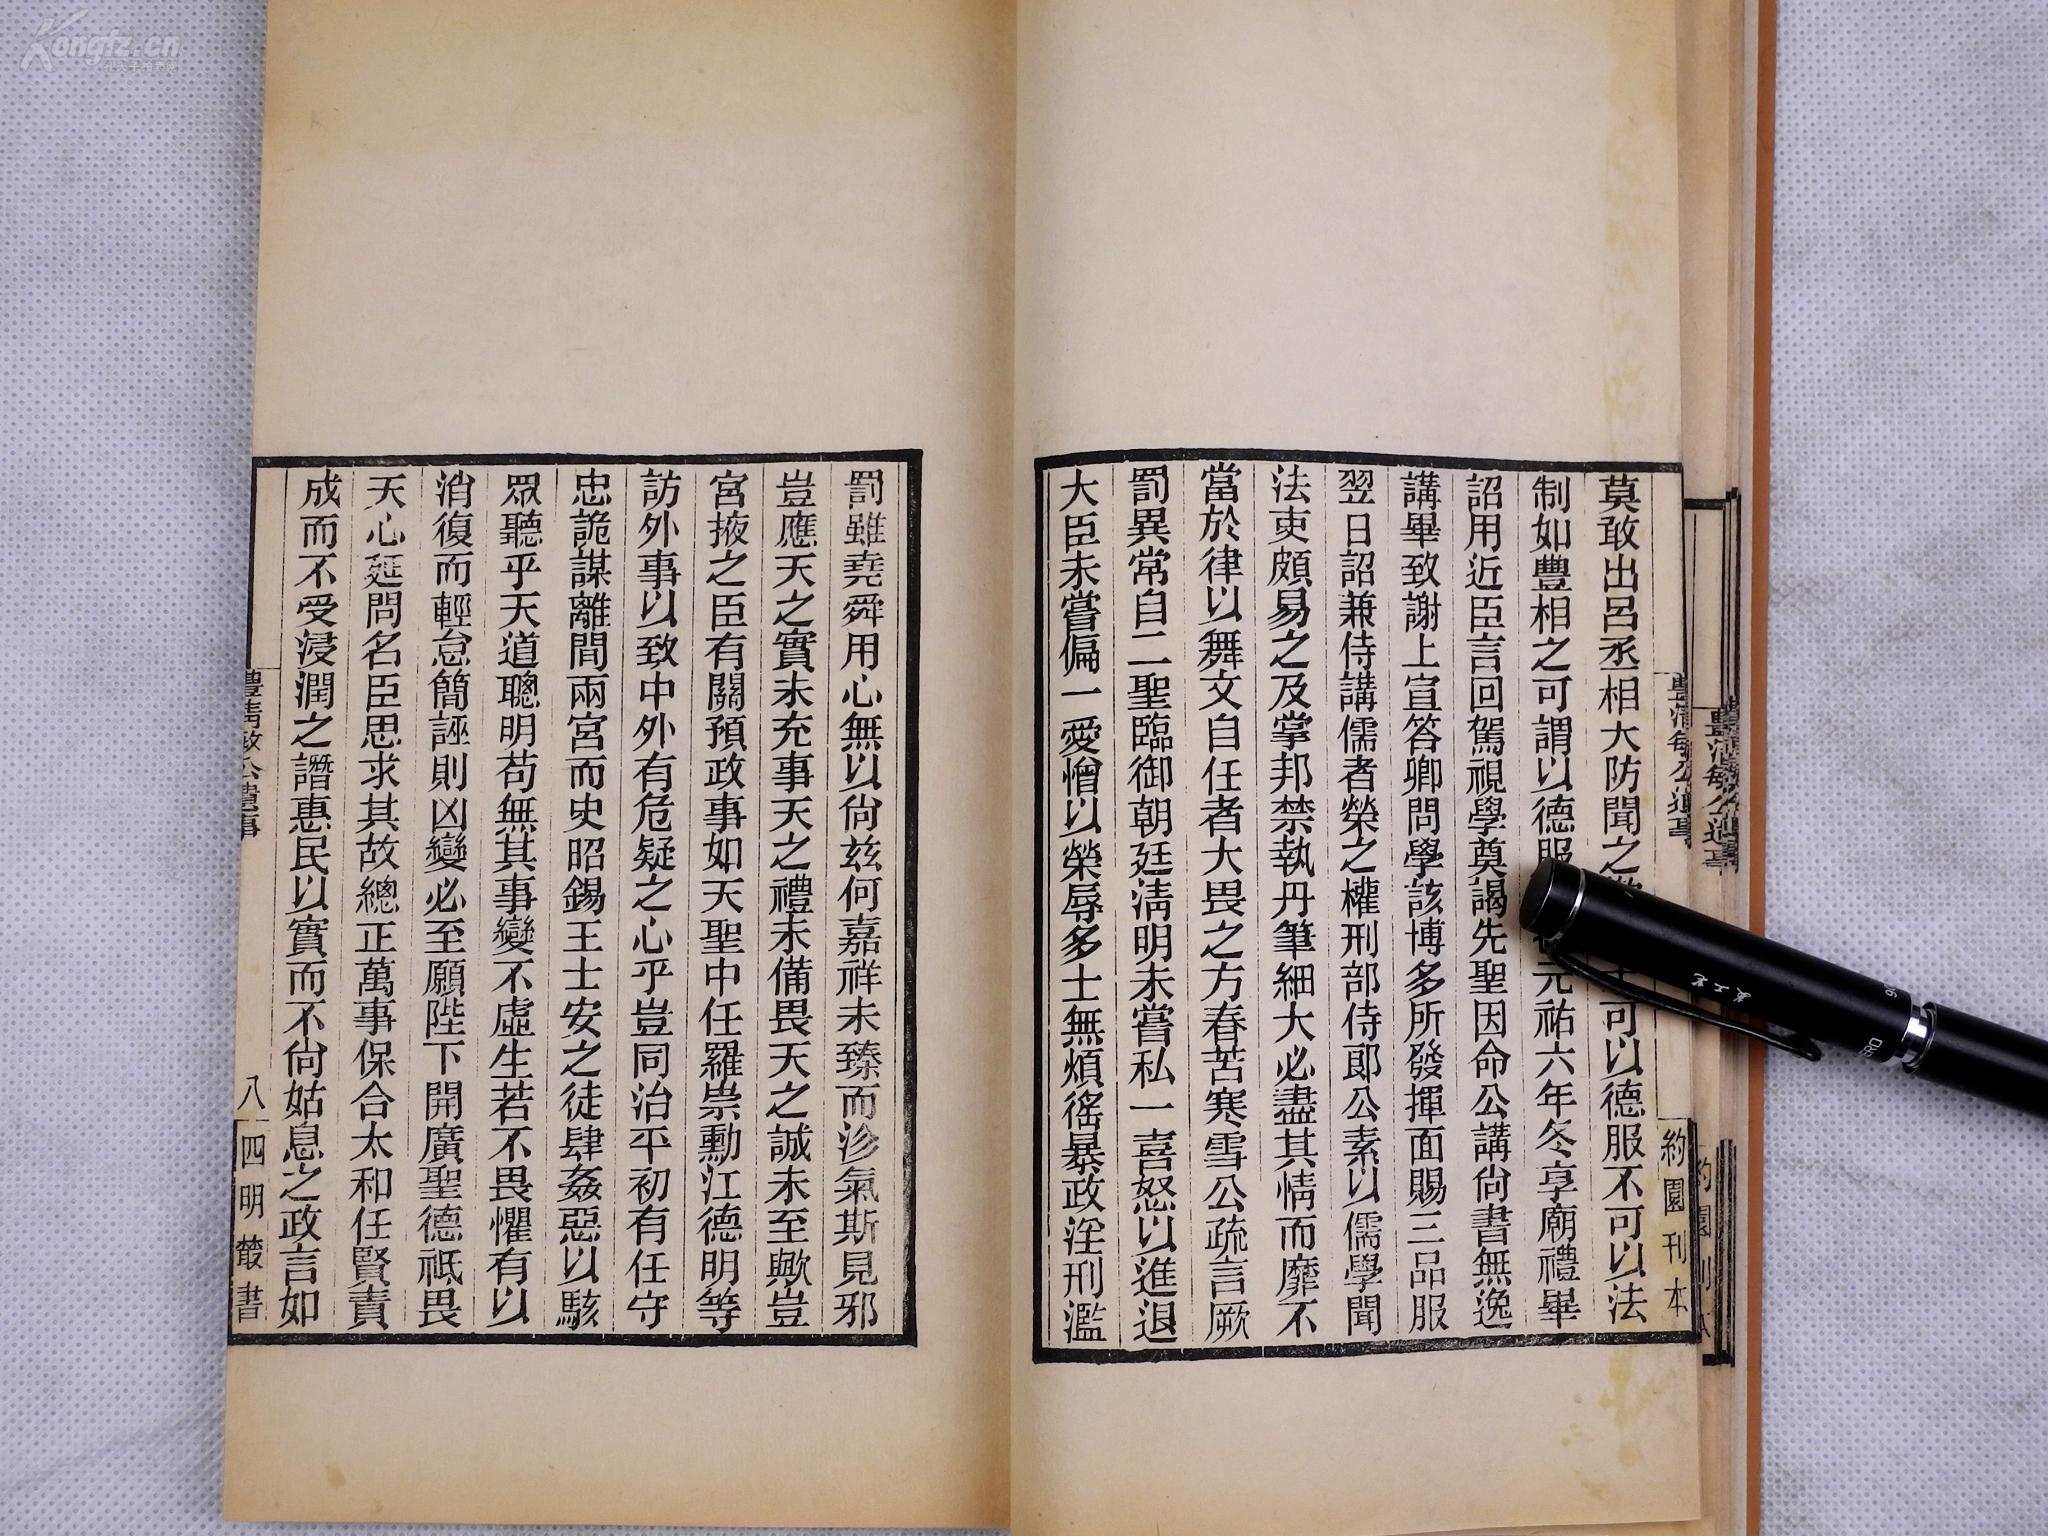 莫敢出呂丞相大防聞之可以德服不可以法
制如豐相之可謂以德服元祐六年冬享廟禮畢
詔用近臣言回駕視學奠謁先聖因命公講尙書無逸
講畢致謝上宣答卿問學該博多所發揮面賜三品服
翌日詔兼侍講儒者榮之權刑部侍郎公素以儒學聞
法吏頗易之及掌邦禁執丹筆細大必盡其情而靡不
當於律以舞文自任者大畏之方春苦寒雪公疏言厥
罰異常自二聖臨御朝廷淸明未嘗私一喜怒以進退
大臣未嘗偏一愛憎以榮辱多士無煩徭暴政淫刑濫
罰雖堯舜用心無以尙玆何嘉祥未臻而沴氣斯見邪
豈應天之實未充事天之禮未備畏天之誠未至歟豈
宮掖之臣有關預政事如天聖中任羅崇勳江德明等
訪外事以致中外有危疑之心乎豈同治平初有任守
忠詭謀離間兩宮而史昭錫王士安之徒肆姦惡以駭
眾聽乎天道聰明苟無其事變不虛生若不畏懼有以
消復而輕怠簡誣則凶變必至願陛下開廣聖德祗畏
天心延問名臣思求其故總正萬事保合太和任賢責
成而不受浸潤之譖惠民以實而不尙姑息之政言如
豐淸敏公遺事
八
四明叢書
豐淸敏公遺事
約園刊本
豐淸敏公遺事
約園刊本
Kongfz.cn
孔夫子拍賣網